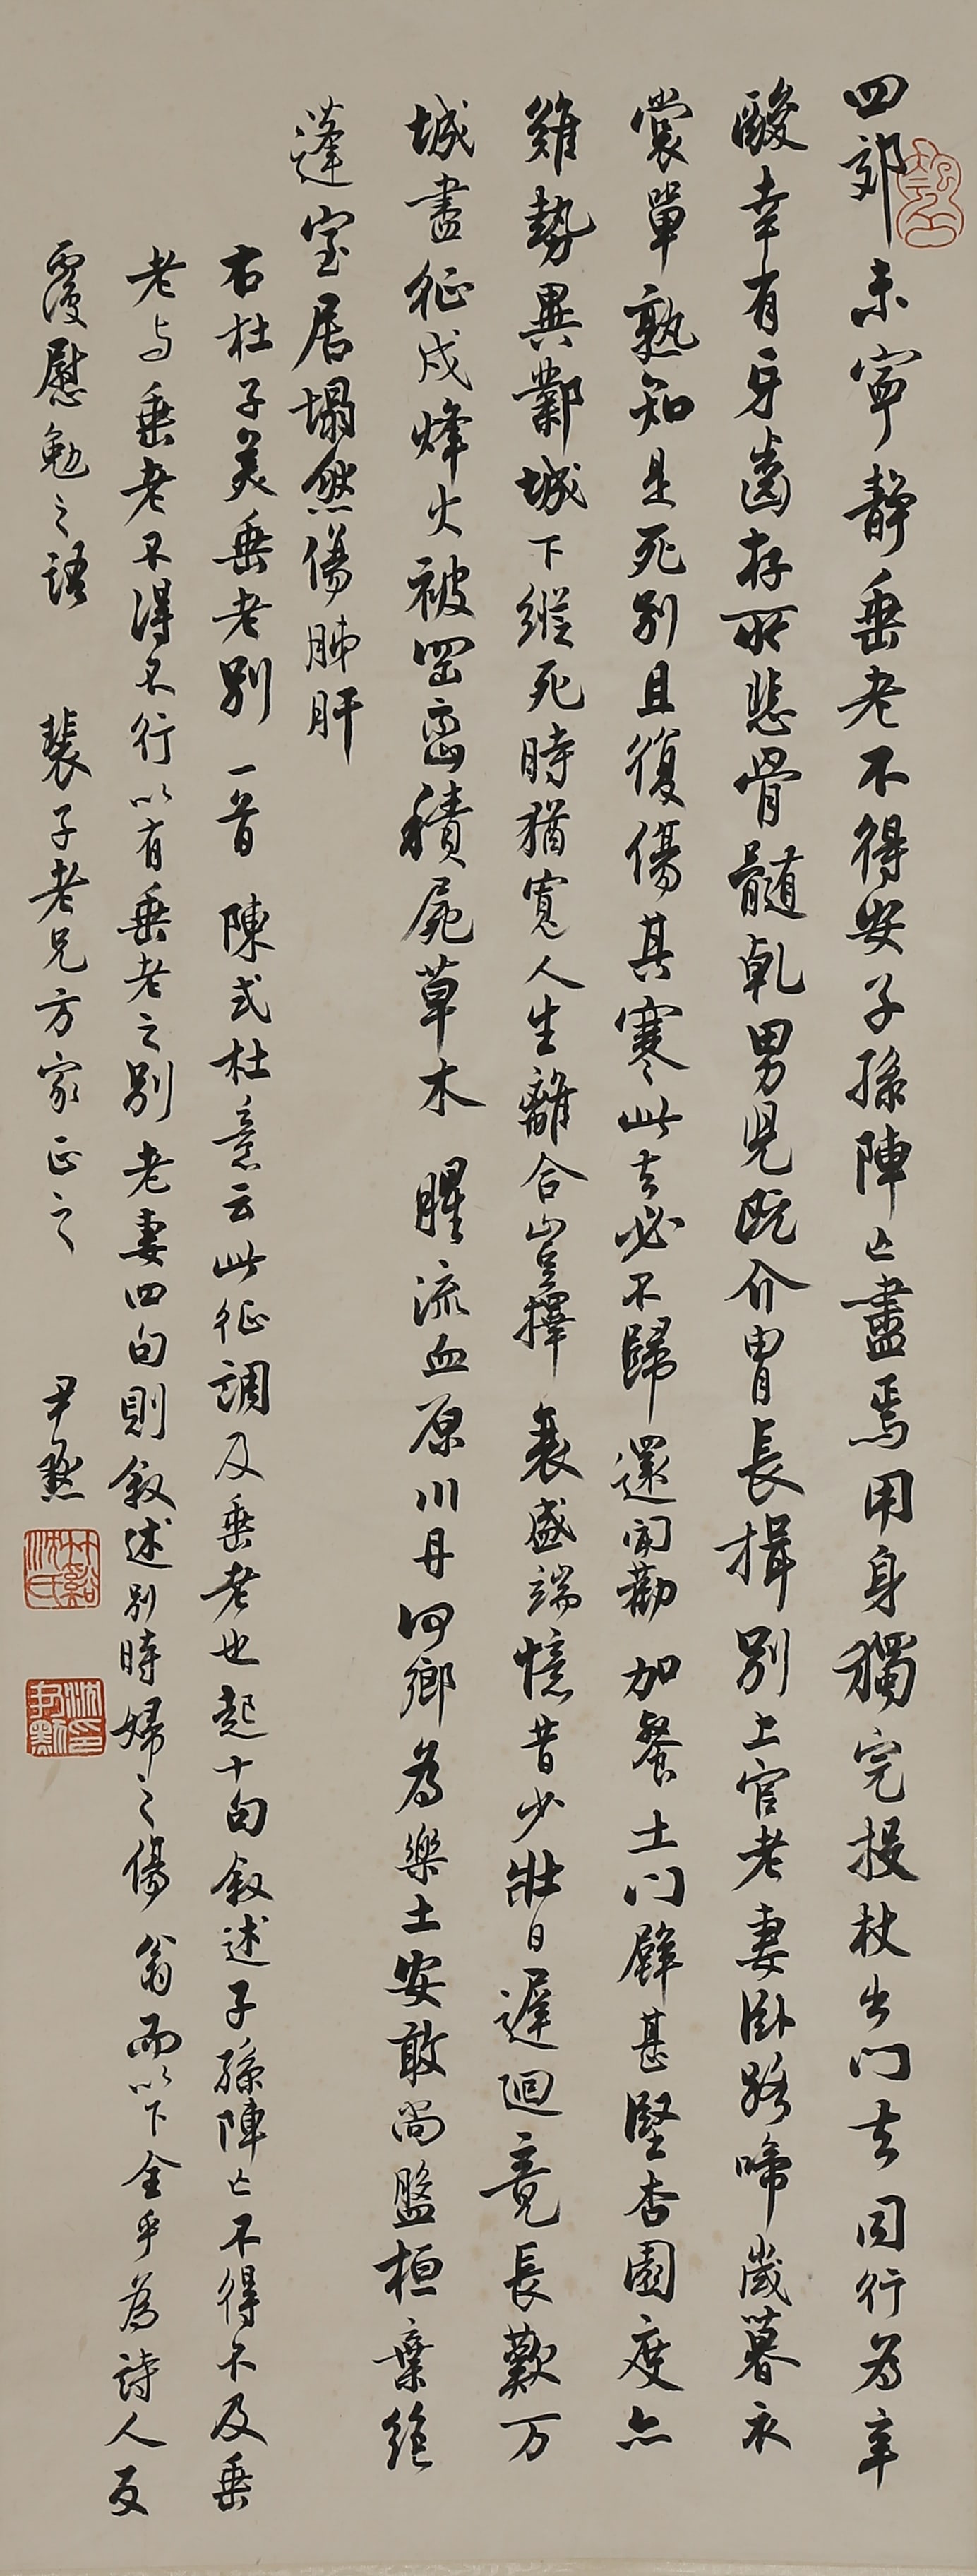 四郊未寧靜垂老不得安子孫陣亡盡焉用身獨完投杖出門去同行為辛
酸幸有牙齒存所悲骨髓乾男兒既介胄長揖別上官老妻臥路啼歲暮衣
裳單熟知是死別且復傷其寒此去必不歸還聞勸加餐土门壁甚堅杏園度亦
難勢異鄴城下縱死時猶寬人生離合豈擇衰盛端憶昔少壯日遲迴竟長歎万
城盡征戍烽火被岡巒積屍草木腥流血原川丹何鄉為樂土安敢尚盤桓棄絕
蓬室居塌然傷肺肝
右杜子美垂老別一首陳式杜意云此征調及垂老也起十句敘述子孫陣亡不得不及垂
老与垂老不得不行以有垂老之別老妻四句則敘述別時婦之傷翁而以下全乎為詩人反
覆慰勉之語
裴子老兄方家正之
尹默
竹谿沈氏
沈尹默印